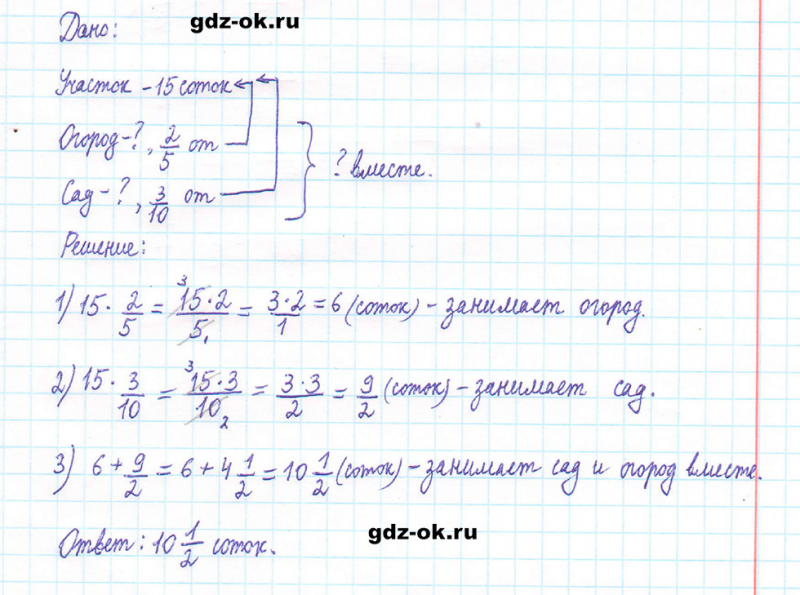 gdz-ok.ru
Дано:
Участок - 15 соток
Огород - ?, 2/5 от
Сад - ?, 3/10 от
? вместе.
Решение:
1) 15 · 2/5 = 15·2/5 = 3·2/1 = 6 (соток) - занимает огород.
2) 15 · 3/10 = 15·3/10 = 3·3/2 = 9/2 (соток) - занимает сад.
3) 6 + 9/2 = 6 + 4 1/2 = 10 1/2 (соток) - занимает сад и огород вместе.
gdz-ok.ru
Ответ: 10 1/2 соток.